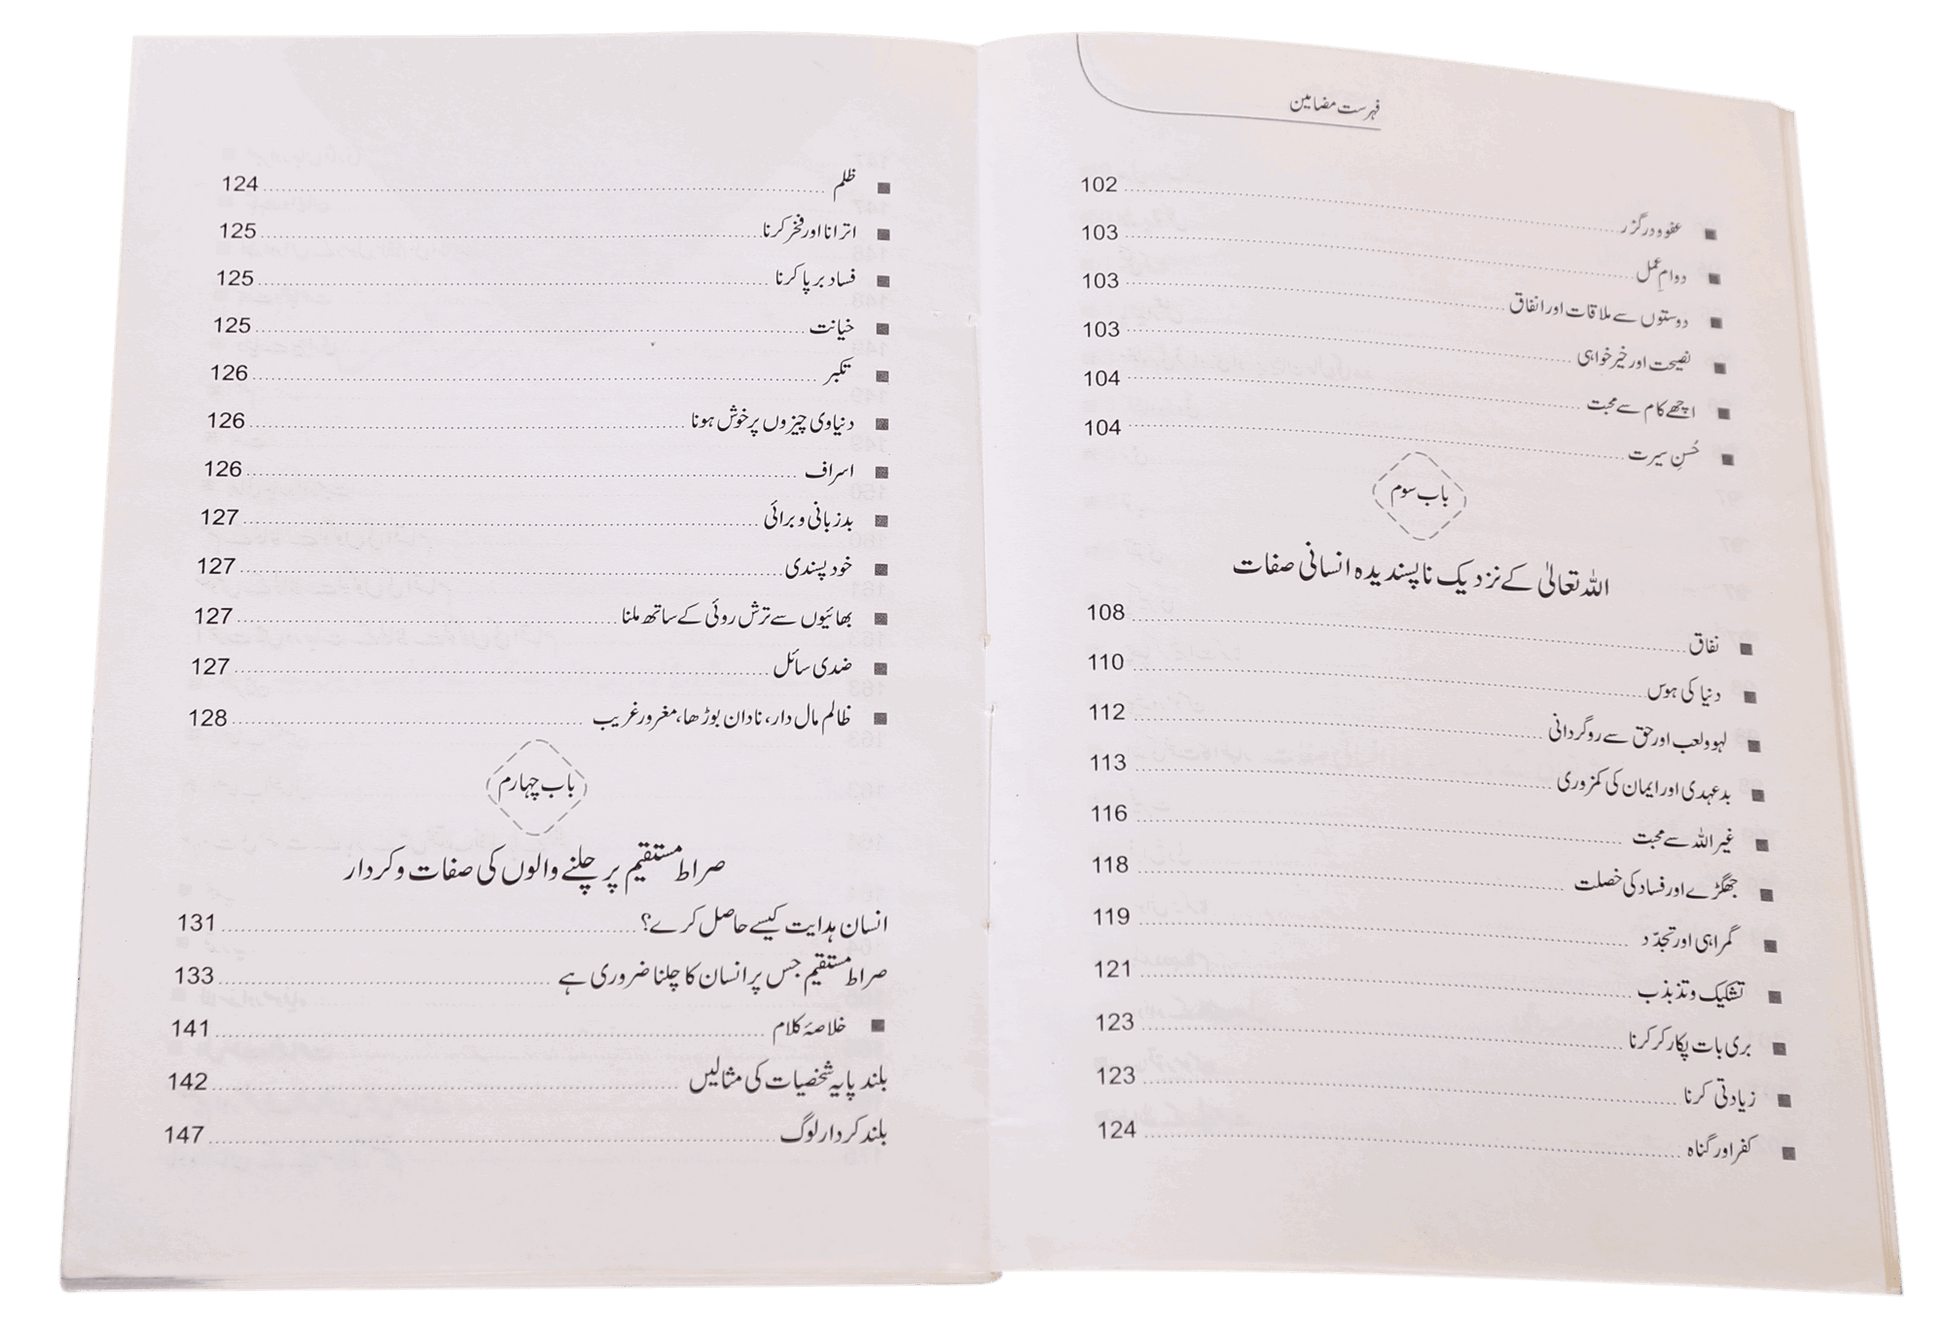 فہرست مضامین
عفو و درگزر 102
دوامِ عمل 103
دوستوں سے ملاقات اور انفاق 103
نصیحت اور خیر خواہی 103
اچھے کام سے محبت 104
حُسنِ سیرت 104
باب سوم
اللہ تعالیٰ کے نزدیک ناپسندیدہ انسانی صفات
نفاق 108
دنیا کی ہوس 110
لہو و لعب اور حق سے روگردانی 112
بدعہدی اور ایمان کی کمزوری 113
غیر اللہ سے محبت 116
جھگڑے اور فساد کی خصلت 118
گمراہی اور تجدّد 119
تشکیک و تذبذب 121
بری بات پکار کر کرنا 123
زیادتی کرنا 123
کفر اور گناہ 124
ظلم 124
اترانا اور فخر کرنا 125
فساد برپا کرنا 125
خیانت 125
تکبر 126
دنیاوی چیزوں پر خوش ہونا 126
اسراف 126
بدزبانی و برائی 127
خود پسندی 127
بھائیوں سے ترش روئی کے ساتھ ملنا 127
ضدی سائل 127
ظالم مال دار، نادان بوڑھا، مغرور غریب 128
باب چہارم
صراط مستقیم پر چلنے والوں کی صفات و کردار
انسان ہدایت کیسے حاصل کرے؟ 131
صراط مستقیم جس پر انسان کا چلنا ضروری ہے 133
خلاصۂ کلام 141
بلند پایہ شخصیات کی مثالیں 142
بلند کردار لوگ 147